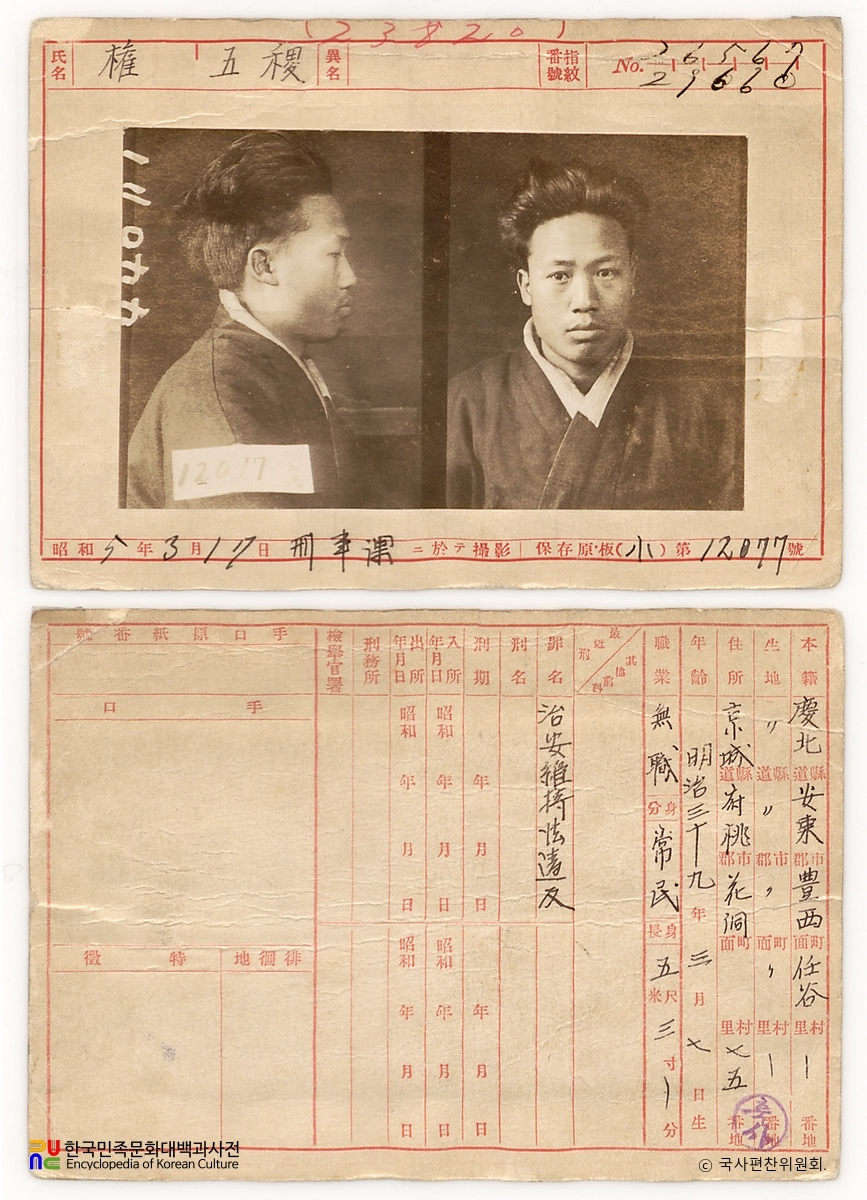 (23820)
氏名 權 五 稷 異名 指紋番號 No.
12017
昭和 5 年 3 月 17 日 刑事課 ニ於テ撮影 保存原板(小)第 12077 號
本籍 慶北 道縣 安東 郡市 豊西 面町 任谷 里村 一 番地
生地 〃 道縣 〃 郡市 〃 面町 〃 里村 一 番地
住所 京城 道縣 府 桃 郡市 花洞 面町 里村 七五 番地
年齡 明治三十九 年 三 月 七 日生
職業 無職 身分 常民 身長 五 尺米 三 寸 一 分
最近刑 其他前科
罪名 治安維持法違反
刑名
刑期 年 月 日 年 月 日
入所年月日 昭和 年 月 日 昭和 年 月 日
出所年月日 昭和 年 月 日 昭和 年 月 日
刑務所
檢擧官署
手口原紙番號
手口
徘徊地
特徵
한국민족문화대백과사전
Encyclopedia of Korean Culture
© 국사편찬위원회.